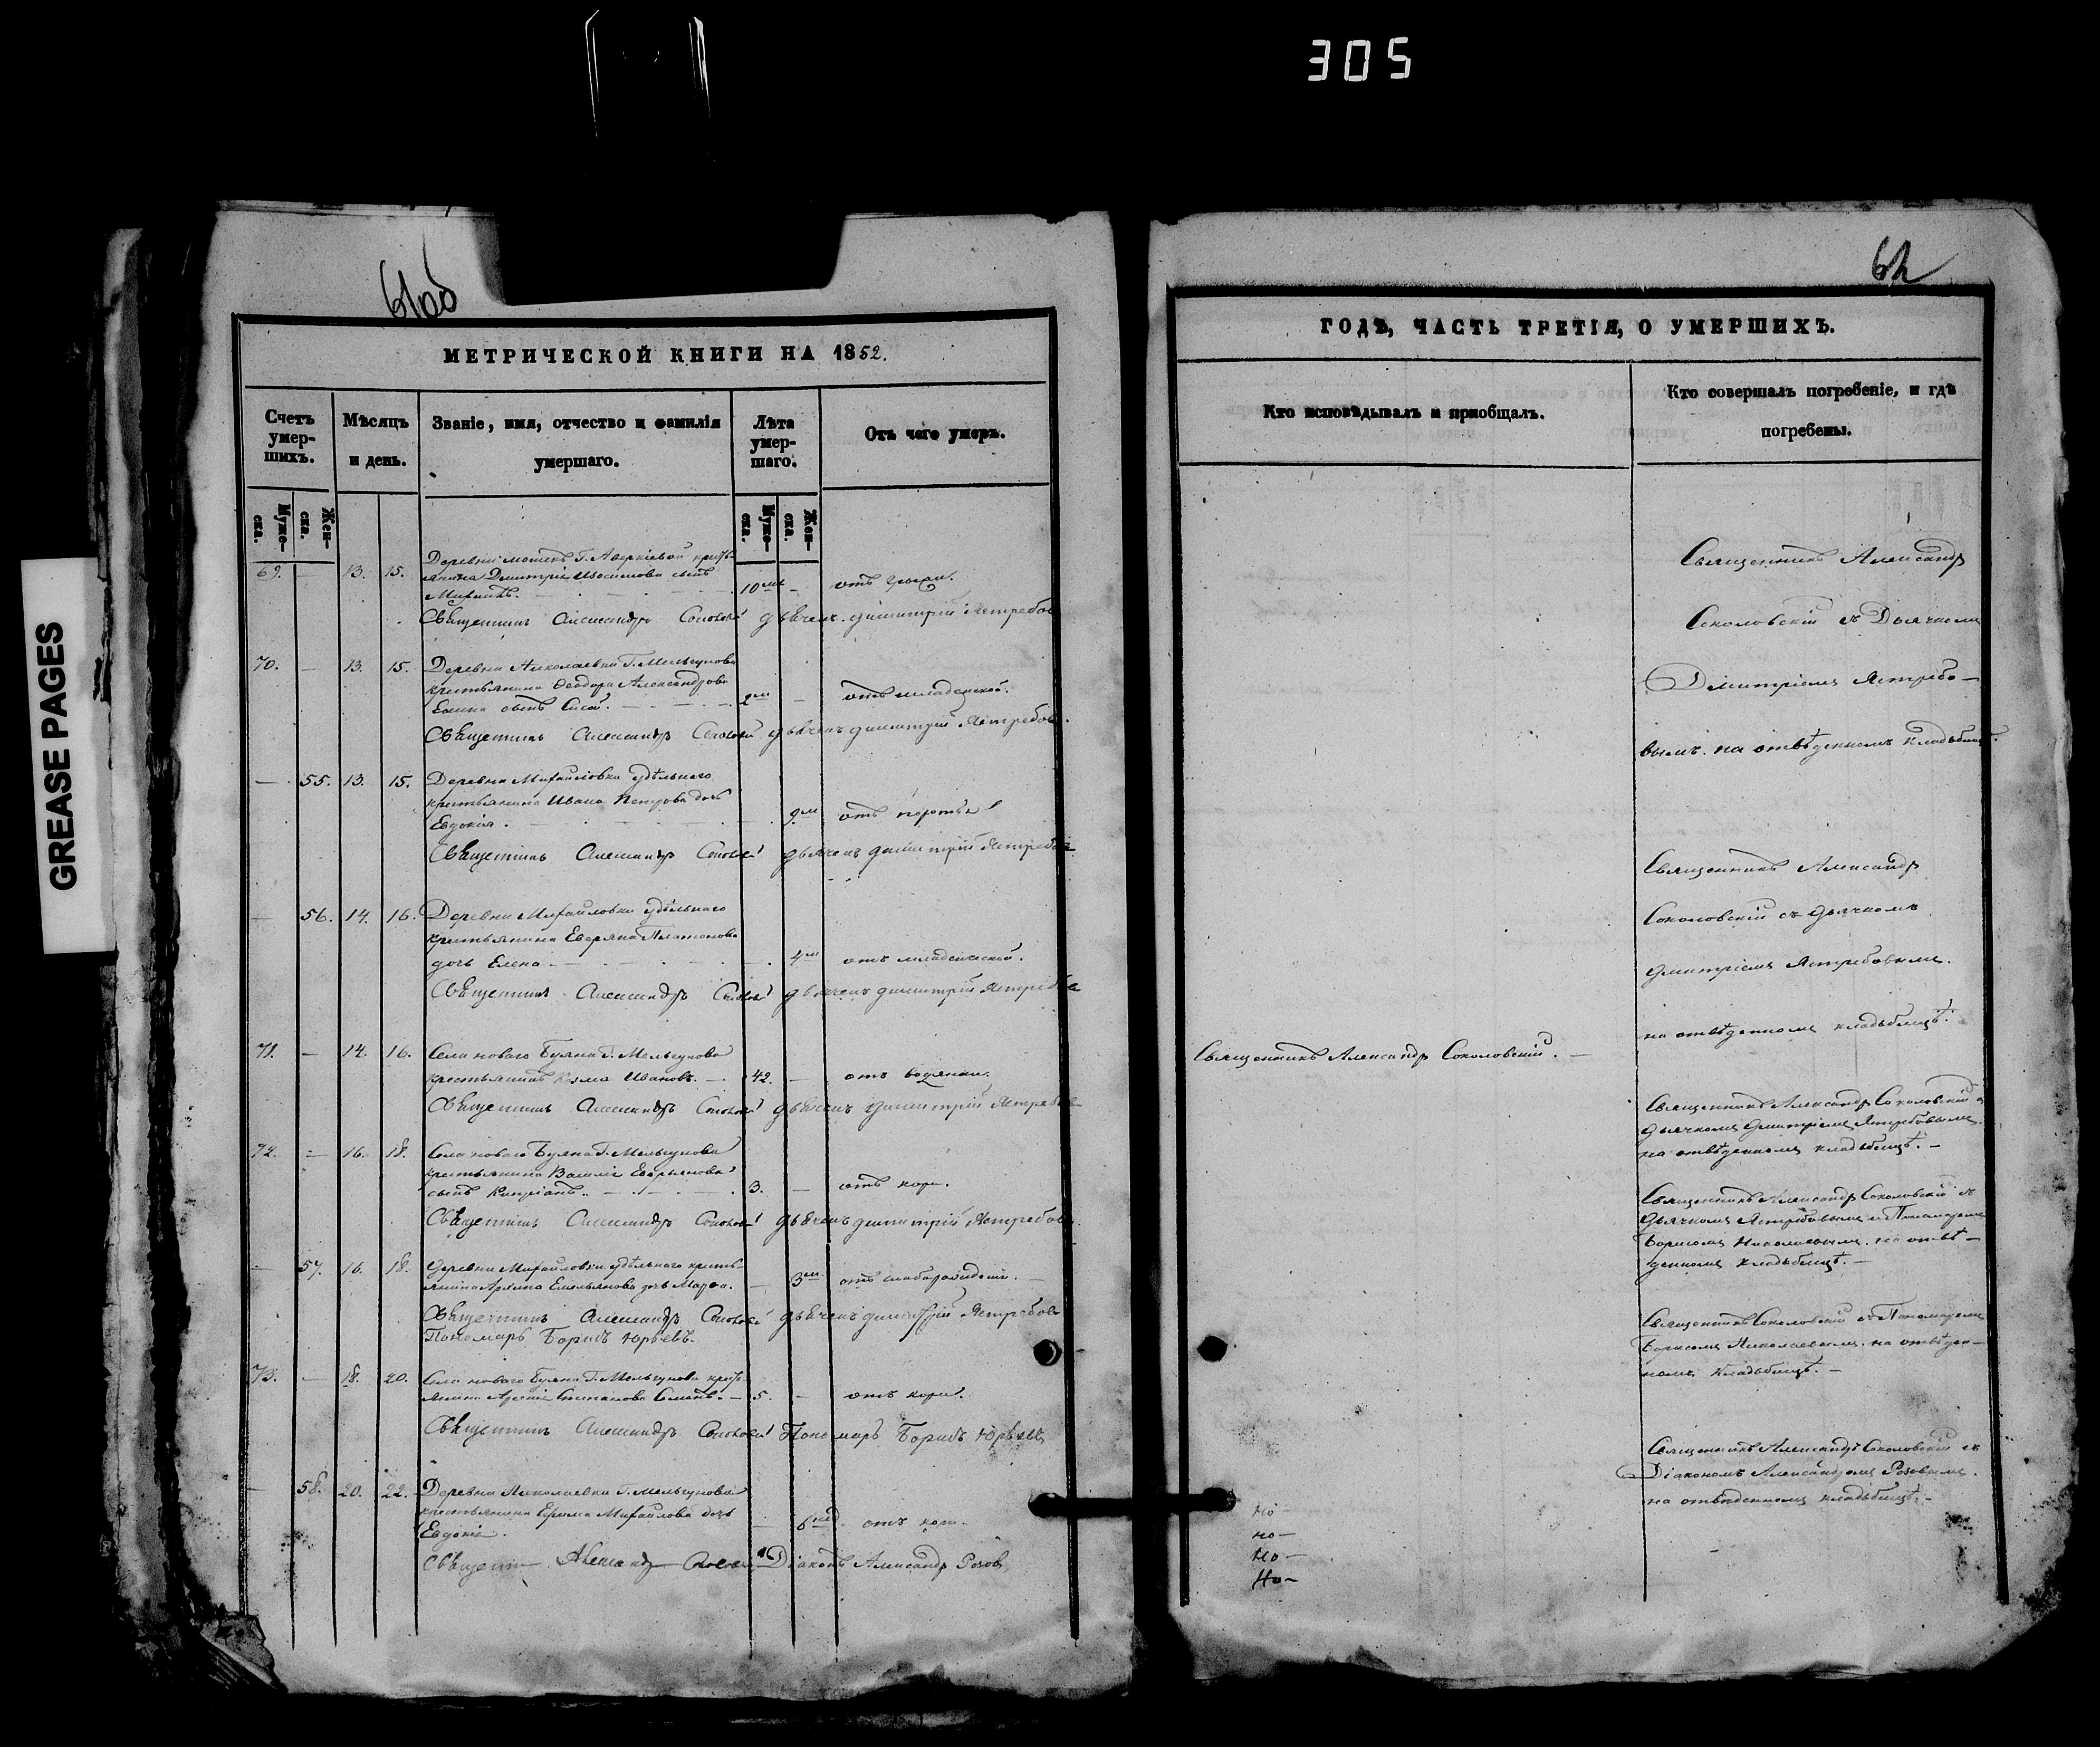 305
GREASE PAGES
61об
МЕТРИЧЕСКОЙ КНИГИ НА 1852.
Счетъ умер-шихъ.
Мѣсяцъ и день.
Званіе, имя, отчество и фамилія умершаго.
Лѣта умер-шаго.
Отъ чего умеръ.
Муже-ска.
Жен-ска.
Муже-ска.
Жен-ска.
69. — 13. 15. Деревни Г. Аверкіевой кресть-
янина Димитрія сынъ
10
Священникъ Александръ Соколовскій дьячекъ Димитрій Ястребовъ
70. — 13. 15. Деревни Николаевки Г. Мельгунова
крестьянина Ѳеодора Александрова
сынъ 2 — отъ младенской.
Священникъ Александръ Соколовскій дьячекъ Димитрій Ястребовъ.
— 55. 13. 15. Деревни Михайловки удѣльнаго
крестьянина Ивана Петрова дочь
Евдокія. 9
Священникъ Александръ Соколовскій дьячекъ Димитрій Ястребовъ
— 56. 14. 16. Деревни Михайловки удѣльнаго
крестьянина Платонова
дочь Елена 4 отъ младенческой.
Священникъ Александръ Соколовскій дьячекъ Димитрій Ястребовъ
71. — 14. 16. Села новаго Буяна Г. Мельгунова
крестьянинъ Козма Ивановъ. — 42. — отъ водянки.
Священникъ Александръ Соколовскій дьячекъ Димитрій Ястребовъ
72. — 16. 18. Села новаго Буяна Г. Мельгунова
крестьянина Василія
сынъ Кипріанъ. 3. — отъ кори.
Священникъ Александръ Соколовскій дьячекъ Димитрій Ястребовъ.
— 57. 16. 18. Деревни Михайловки удѣльнаго кресть-
янина Емельянова дочь Марѳа. — 3
Священникъ Александръ Соколовскій дьячекъ Димитрій Ястребовъ
Пономарь Борисъ Юрьевъ.
73. — 18. 20. Села новаго Буяна Г. Мельгунова кресть-
янина Степанова — 5. — отъ кори.
Священникъ Александръ Соколовскій Пономарь Борисъ Юрьевъ
— 58. 20. 22. Деревни Николаевки Г. Мельгунова
крестьянина Ефима Михайлова дочь
Евдокія. 6 отъ кори.
Александръ Діаконъ Александръ Розовъ
62
ГОДЪ, ЧАСТЬ ТРЕТІЯ, О УМЕРШИХЪ.
Кто исповѣдывалъ и пріобщалъ.
Кто совершалъ погребеніе, и гдѣ погребены.
Священникъ Александръ
Соколовскій съ Дьячкомъ
Димитріемъ Ястребо-
вымъ. на отвѣденномъ кладбищѣ.
Священникъ Александръ
Соколовскій съ дьячкомъ
Димитріемъ Ястребовымъ.
на отвѣденномъ кладбищѣ.
Священникъ Александръ Соколовскій. —
Священникъ Александръ Соколовскій съ
дьячкомъ Димитріемъ Ястребовымъ.
на отвѣденномъ кладбищѣ. —
Священникъ Александръ Соколовскій съ
Дьячкомъ Ястребовымъ и Пономаремъ
Борисомъ Николаевымъ. на отвѣ-
денномъ кладбищѣ. —
Священникъ Соколовскій съ Пономаремъ
Борисомъ Николаевымъ. на отвѣден-
номъ кладбищѣ. —
Священникъ Александръ Соколовскій съ
Діакономъ Александромъ Розовымъ.
на отвѣденномъ кладбищѣ. —
но —
но —
но —
Но —